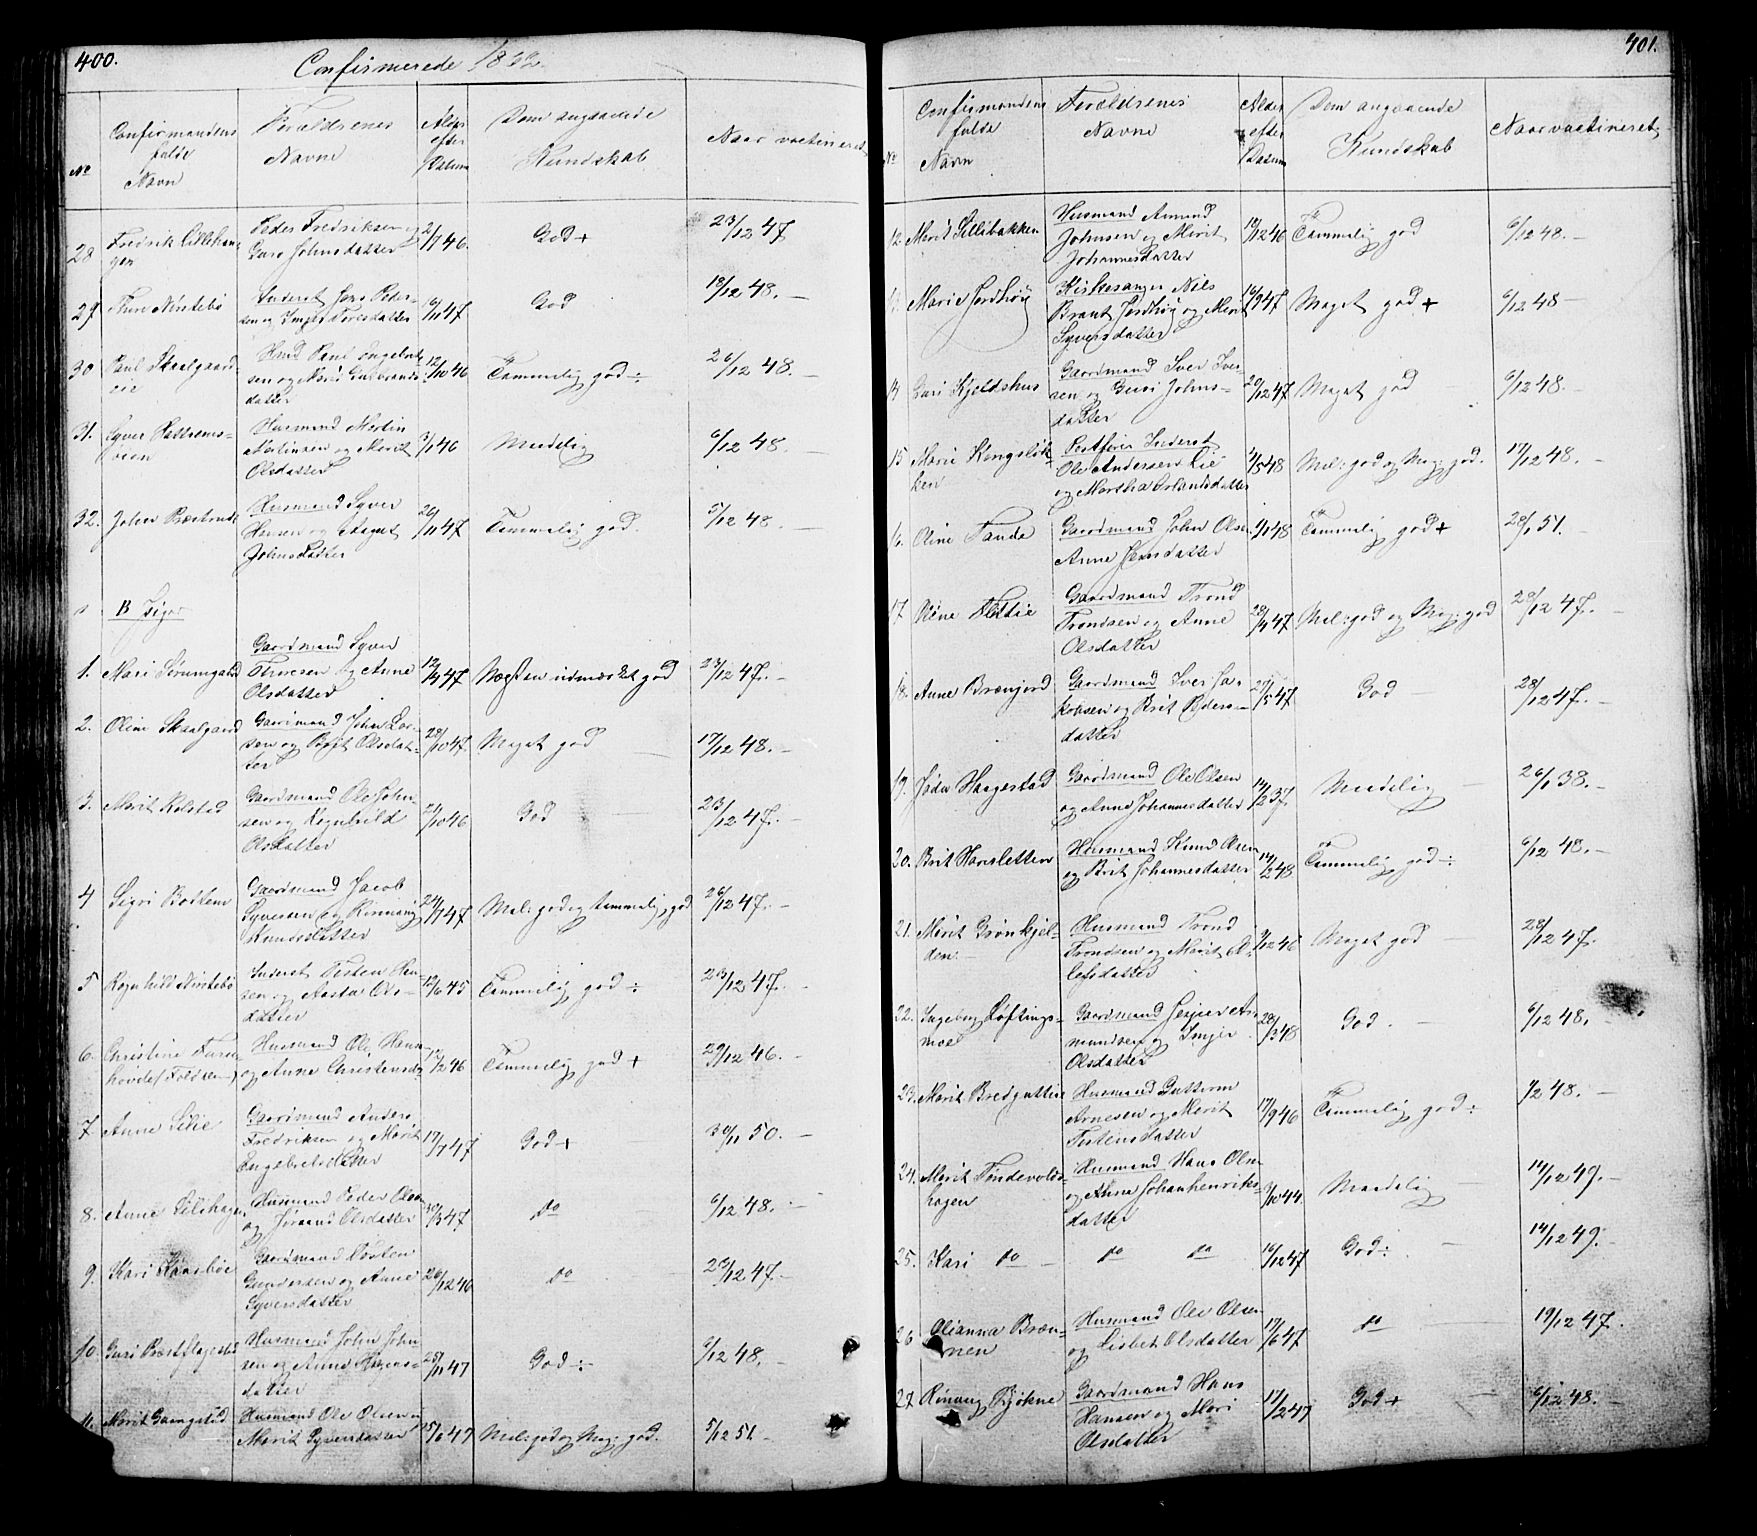 400.
Confirmerede 1862.
No
Confirmandens
fulde
Navn
Foreldrenes
Navne
Alder
efter
Datum
Dom angaaende
Kundskab
Naar vactineret
28 Fredrik Lillehaugen
Peder Fredriksen og
Guro Johnsdatter
2/1 46. God + 23/12 47
29 Thore
Inderst Jens Peder-
sen og Inger Toresdatter
God 19/12 48. —
30 Paul Skaalgaard-
eie
Engebret-
sen og Gulbrands-
datter
12/10 46 Tammelig god ÷ 26/12 48. —
31.
Husmand Mortin
Mortinsen og Marit
Olsdatter
Maadelig 6/12 48. —
32. John
Husmand Syver
Hansen og
Johnsdatter
26/11 47 Tammelig god. 5/12 48. —
B Piger
1. Mari Sørumgard
Gaardmand Syver
Thoresen og Anne
Olsdatter
Næsten udmærket god 23/12 47. —
2. Oline Skaalgaard
Gaardmand John Lar-
sen og Brit Olsdat-
ter
28/10 47. Meget god 17/12 48. —
3. Marit Kolstad
Gaardmand Ole John-
sen og Ragnhild
Olsdatter
21/10 46 God 23/12 47. —
4 Sigri Botten
Gaardmand Jacob
Syversen og Rønnaug
Knudsdatter
24/7 47 Mel: god og tammelig god 26/12 47. —
5 Ragnhild
Inderst Tosten Han-
sen og Aasta Ols-
datter
12/6 45 Tammelig god ÷ 23/12 47. —
6. Christine Furu-
hovde
Husmand Ole Hans-
og Anne Christensd:
Tammelig god + 29/12 46. —
7 Anne Lilie
Gaardmand Anders
Fredriksen og Marit
Engebretsdatter
19/7 47 God + 30/11 50. —
8. Anne Liliehagen
Husmand Peder Olsen
og Jørand Olsdatter
30/3 47 do 6/12 48. —
9. Kari
Gaardmand Tosten
Gundersen og Anne
Syversdatter
26/12 46 do 23/12 47. —
10 Guri
Husmand John John-
sen og Anne
datter
28/11 47 God ÷ 6/12 48. —
11. Marit
Husmand Ole Olsen og
Marit Syversdatter
Mel: god og Meg: god. 5/12 51. —
401.
No
Confirmandens
fulde
Navn
Foreldrenes
Navne
Alder
efter
Datum
Dom angaaende
Kundskab
Naar vactineret.
12 Marit Lillibakken
Husmand Amund
Johnsen og Marit
Johannesdatter
19/12 46 Tammelig god 6/12 48. —
Marie Jordhøy
Kirkesanger Nils
Brant Jordhøy og Marit
Syversdatter
16/9 47 Meget god + 6/12 48 —
Guri Kjeldshus
Gaardmand Iver Iver-
sen og Guri Johns-
datter
20/12 47 Meget god 6/12 48. —
15 Marie Kongsløk-
ken
Inderst
Ole Andersen Lie
og Martha Erlandsdatter
Mel: god og Meg: god. 17/12 48. —
16. Oline Fande
Gaardmand John Olsen
Anne Hansdatter
Tammelig god + 28/1 51. —
17
Gaardmand Trond
Trondsen og Anne
Olsdatter
Mel: god og Meg: god 28/12 47. —
18. Anne Brænjord
Gaardmand Iver Ja-
kobsen og Brit Peders-
datter
27/5 47 God 28/12 47. —
19. Haagestad
Gaardmand Ole Olsen
og Anne Johannesdatter
Maadelig 26/1 38. —
20. Brit Hansletten
Husmand Knud Olsen
og Brit Johannesdatter
14/2 48 Tammelig god ÷ 6/12 48. —
21. Marit Grønkjel-
den
Husmand Trond
Trondsen og Marit O-
lefsdatter
Meget god 28/12 47.
22. Ingeborg Løftings-
moe
Gaardmand Jesper A-
mundsen og Imjer
Olsdatter
28/3 48 God. — 6/12 48. —
23. Marit Bredgutten
Husmand Guttorm
Arnesen og Marit
Tostensdatter
17/9 46 Tammelig god ÷ 1/2 48. —
24. Marit Tøndevolds-
hagen
Husmand Hans Olsen
og Anne Johanhenriks-
datter
3/10 44. Maadelig 14/12 49. —
25. Kari do — do do 16/12 47 God ÷ 14/12 49. —
26 Olianna Bræn-
nen
Husmand Ole Olsen
og Lisbet Olsdatter
17/6 47 do 19/12 47.
27 Rønaug Bjøkne
Gaardmand Hans
Hansen og Mari
Olsdatter
17/2 47 God + 6/12 48. —